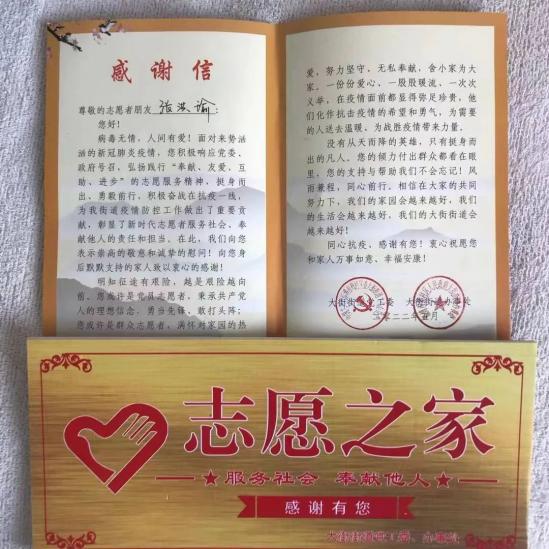 感谢信
尊敬的志愿者朋友 张洪瑜:
您好!
病毒无情,人间有爱!面对来势汹
汹的新冠肺炎疫情,您积极响应党委、
政府号召,弘扬践行“奉献、友爱、互
助、进步”的志愿服务精神,挺身而
出、勇毅前行,积极奋战在抗疫一线,
为我街道疫情防控工作做出了重要贡
献,彰显了新时代志愿者服务社会、奉
献他人的责任和担当。在此,我们向您
表示崇高的敬意和诚挚的慰问!向您身
后默默支持的家人致以衷心的感谢!
明知征途有艰险,越是艰险越向
前。您或许是党员志愿者,秉承共产党
人的理想信念,勇当先锋、敢打头阵;
您或许是群众志愿者,满怀对家园的热
爱,努力坚守,无私奉献,舍小家为大
家。一份份爱心、一股股暖流、一次次
义举,在疫情面前都显得弥足珍贵,他
们化作抗击疫情的希望和勇气,为需要
的人送去温暖、为战胜疫情带来力量。
没有从天而降的英雄,只有挺身而
出的凡人。您的倾力付出群众都看在眼
里,您的支持与帮助我们不会忘记!风
雨兼程,同心前行。相信在大家的共同
努力下,我们的家园会越来越好,我们
的生活会越来越好,我们的大街街道会
越来越好!
同心抗疫,感谢有您!衷心祝愿您
和家人万事如意、幸福安康!
大街街道党工委 大街街道办事处
二〇二二年 月
志愿之家
服务社会 奉献他人
感谢有您
大街街道党工委、办事处